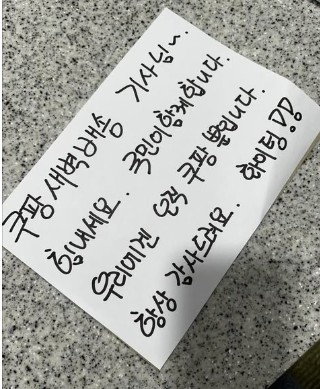 쿠팡 새벽배송 기사님~.
힘내세요. 국민이 함께 합니다.
우리에겐 오직 쿠팡 뿐입니다.
항상 감사드려요. 화이팅!!